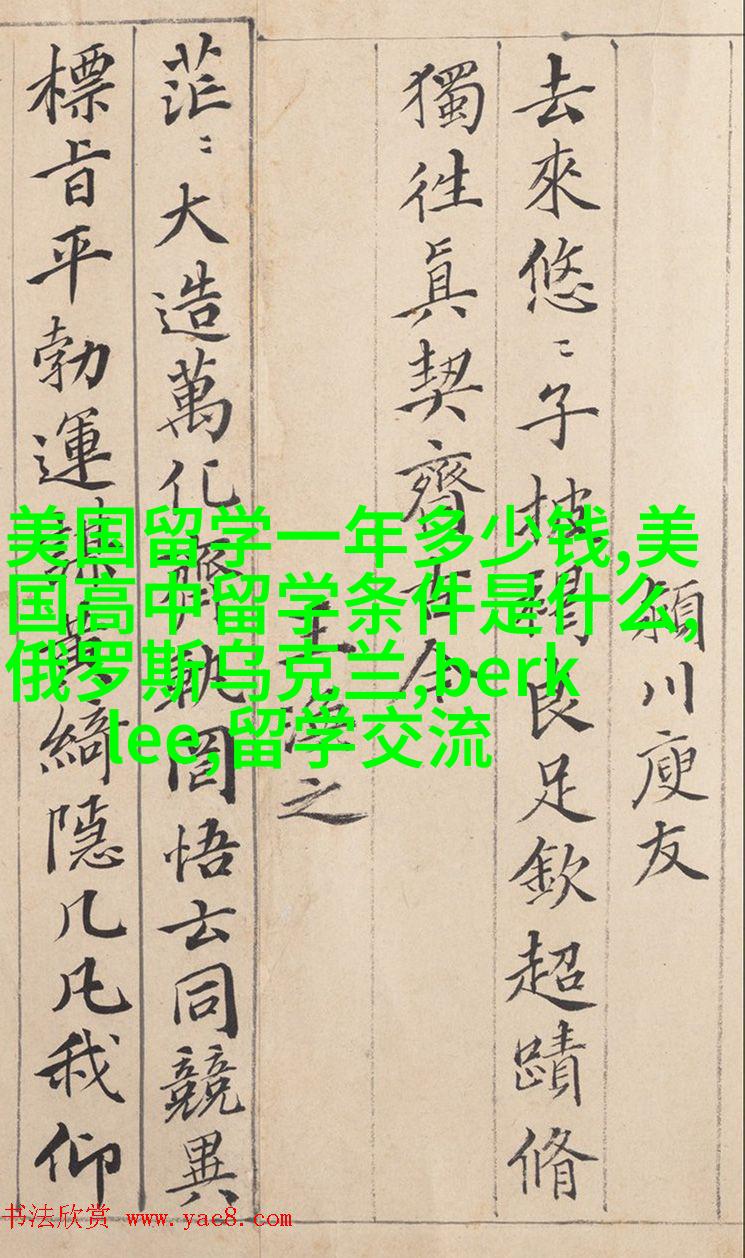 頴川庾友
去來悠〻子披褐良足欽超蹟脩
獨往真契齊古今
王渙之
茫〻大造萬化齊軌罔悟玄同競異
標旨平勃運謀黃綺隱几凡我仰
美国留学一年多少钱,美
国高中留学条件是什么,
俄罗斯乌克兰,berk
lee,留学交流
书法欣赏 www.yac8.com